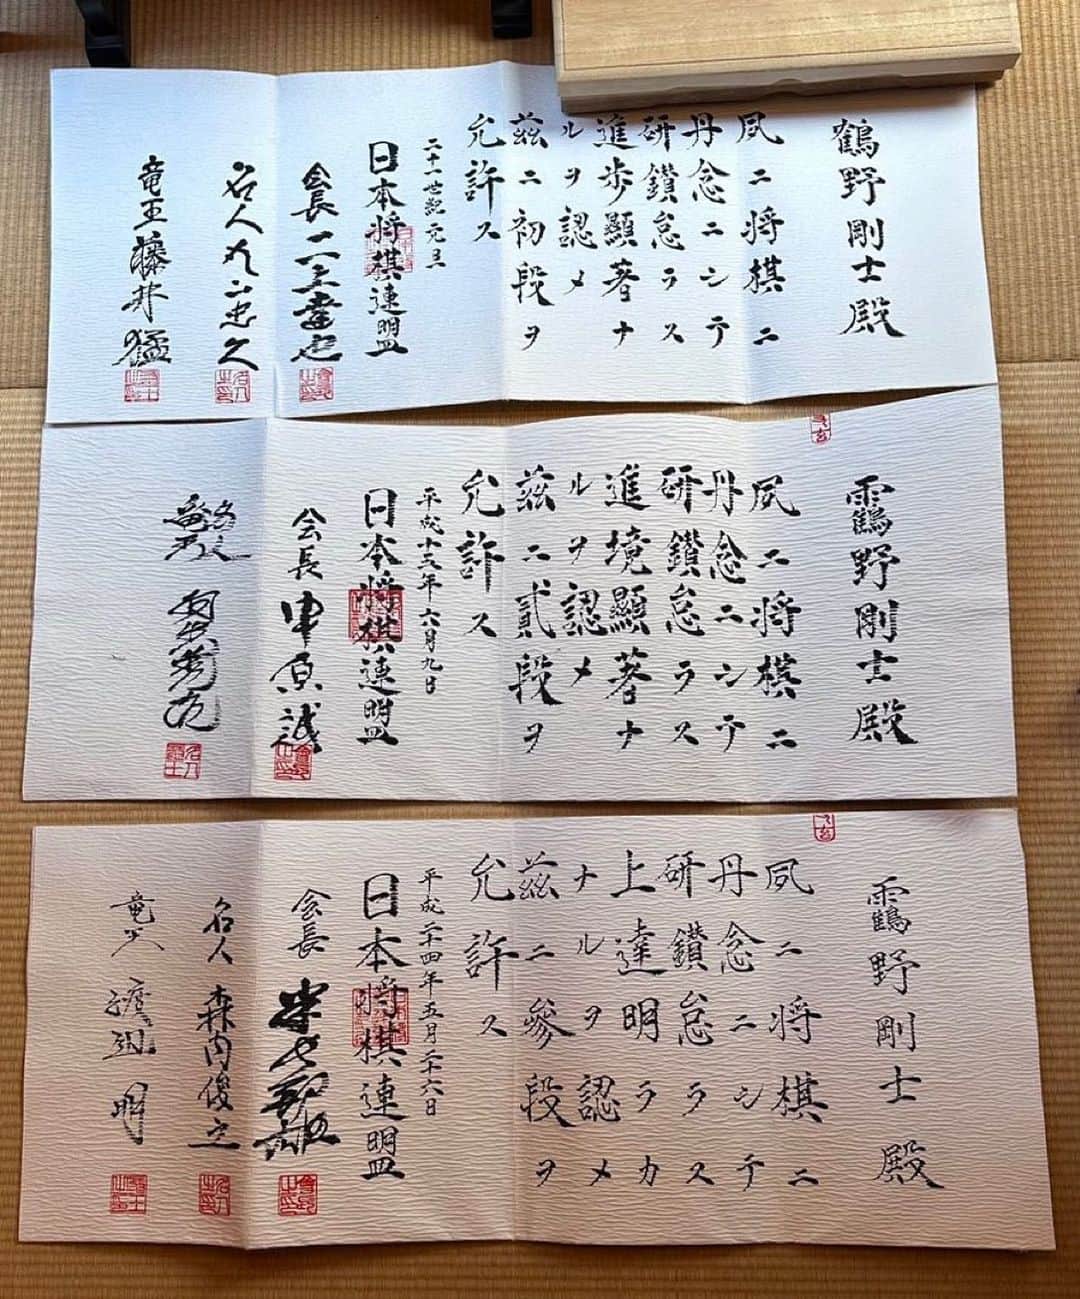 鶴野剛士殿
夙ニ将棋ニ
丹念ニシテ
研鑚怠ラス
進歩顯著ナ
ルヲ認メ
茲ニ初段ヲ
允許ス
二十一世紀元旦
日本将棋連盟
会長 二上達也
名人 丸山忠久
竜王 藤井猛
靏野剛士殿
夙ニ将棋ニ
丹念ニシテ
研鑚怠ラス
進境顯著ナ
ルヲ認メ
茲ニ貳段ヲ
允許ス
平成十五年六月九日
日本将棋連盟
会長 中原誠
名人
竜王 羽生善治
靏野剛士殿
夙ニ将棋ニ
丹念ニシテ
研鑚怠ラス
上達明ラカ
ナルヲ認メ
茲ニ參段ヲ
允許ス
平成二十四年五月二十六日
日本将棋連盟
会長 米長邦雄
名人 森内俊之
竜王 渡辺明